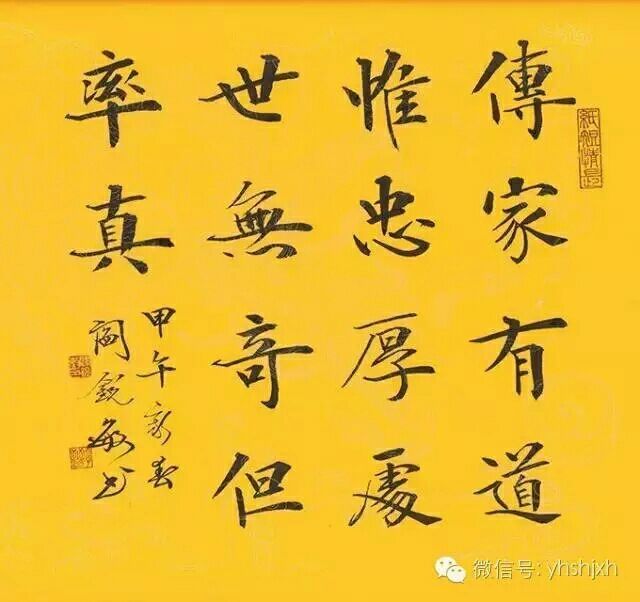 傳家有道
惟忠厚處
世無奇但
率真
甲午新春
閻銳敏書
微信号: yhshjxh